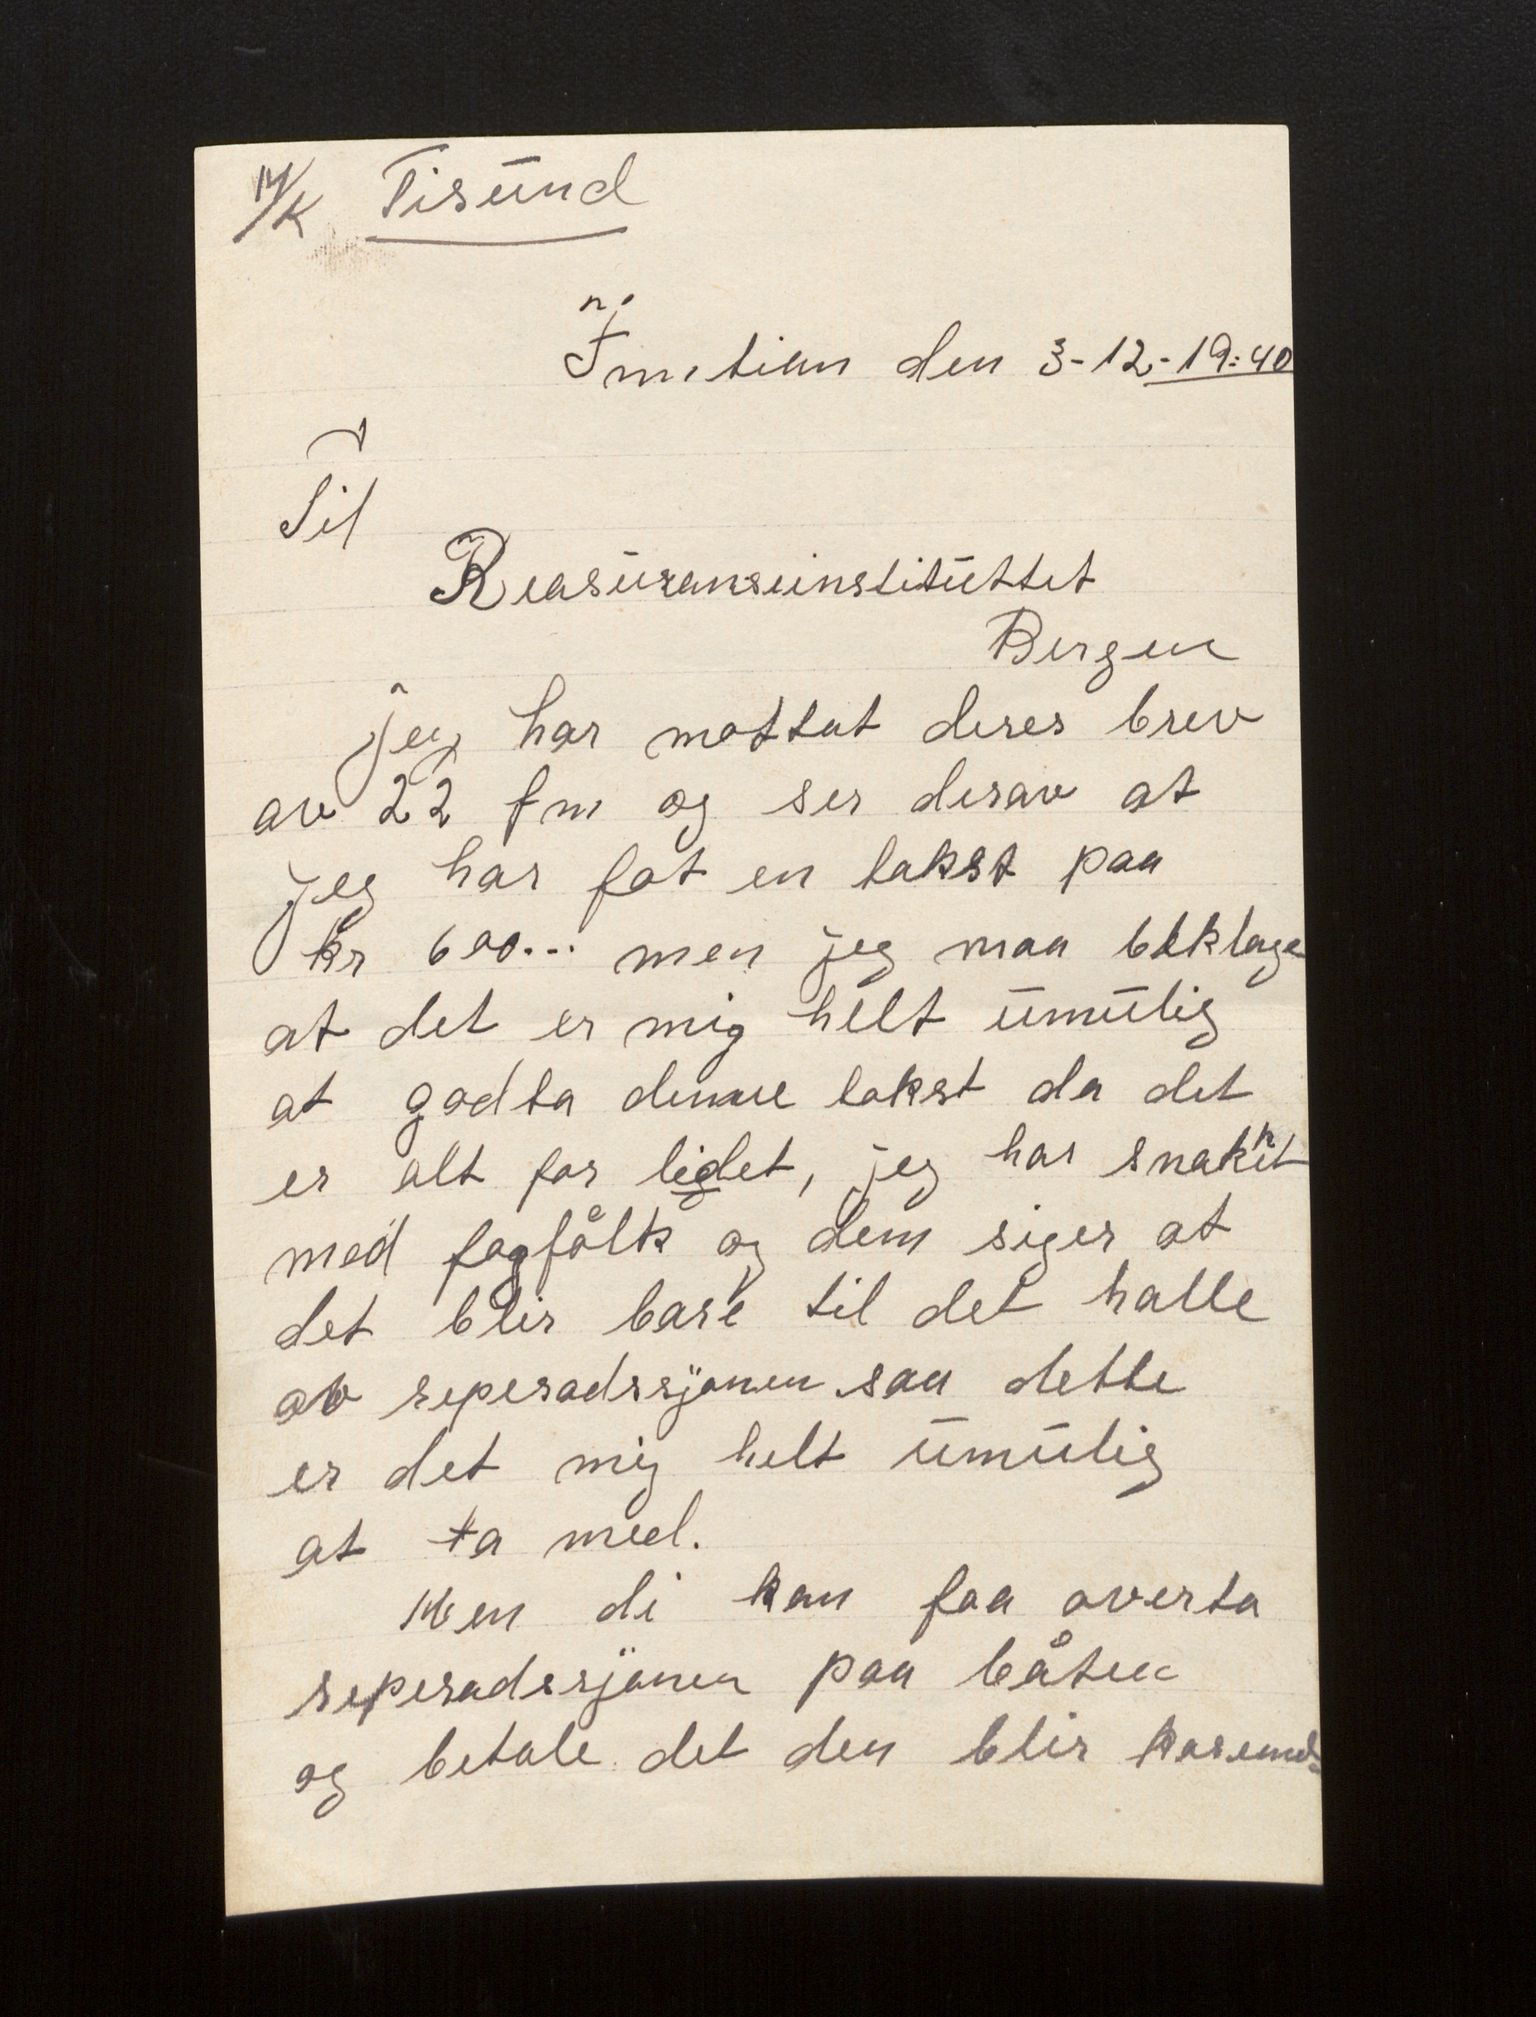 M/K Tisund
den 3-12-19:40
Til
Reasuranseinstituttet
Bergen
jeg har mottat deres brev
av 22 fm og ser derav at
jeg har fot en takst paa
kr 600... men jeg maa beklage
at det er mig helt umulig
at godta denne takst da det
er alt for lidet, jeg har snakket
med fagfålk og dem siger at
det blir bare til det halle
av reperadssjonen saa dette
er det mig helt umulig
at ta med.
Men di kan faa overta
reperadssjonen paa båten
og betale det den blir